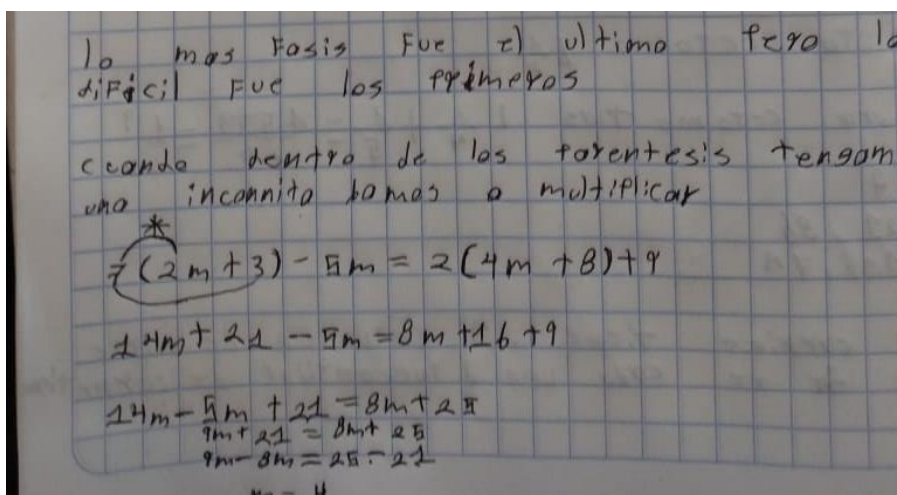 lo mas Fasis Fue el ultimo Pero lo
diFicil Fue los Primeros
cuando dentro de los Parentesis tengam
una incognito bamos a multiplicar
*
7(2m+3) - 5m = 2(4m +8)+9
14m+ 21 - 5m = 8m +16 +9
14m - 5m + 21 = 8m + 25
9m+ 21 = 8m+ 25
9m - 8m = 25 - 21
m = 4